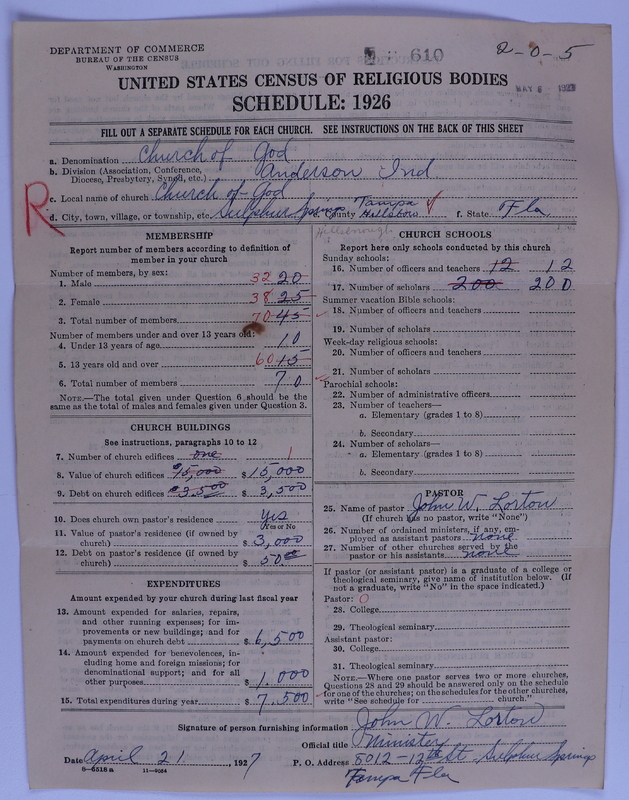 DEPARTMENT OF COMMERCE
BUREAU OF THE CENSUS
WASHINGTON
610
2-0-5
UNITED STATES CENSUS OF RELIGIOUS BODIES
SCHEDULE: 1926
FILL OUT A SEPARATE SCHEDULE FOR EACH CHURCH. SEE INSTRUCTIONS ON THE BACK OF THIS SHEET
a. Denomination Church of God
b. Division (Association, Conference, Diocese, Presbytery, Synod, etc.) Anderson Ind.
R
c. Local name of church Church of God
d. City, town, village, or township, etc. Sulphur Springs Tampa e. County Hillsboro f. State Fla
Hillsborough
MEMBERSHIP
Report number of members according to definition of member in your church
Number of members, by sex:
1. Male 32 20
2. Female 38 25
3. Total number of members 70 45
Number of members under and over 13 years old:
4. Under 13 years of age 10
5. 13 years old and over 60 15
6. Total number of members 70
NOTE.—The total given under Question 6 should be the same as the total of males and females given under Question 3.
CHURCH BUILDINGS
See instructions, paragraphs 10 to 12
7. Number of church edifices one 1
8. Value of church edifices $15,000 $15,000
9. Debt on church edifices $3500 $3,500
10. Does church own pastor's residence Yes
Yes or No
11. Value of pastor's residence (if owned by church) $3,000
12. Debt on pastor's residence (if owned by church) $50.00
EXPENDITURES
Amount expended by your church during last fiscal year
13. Amount expended for salaries, repairs, and other running expenses; for improvements or new buildings; and for payments on church debt $6,500
14. Amount expended for benevolences, including home and foreign missions; for denominational support; and for all other purposes $1.000
15. Total expenditures during year $7.500
CHURCH SCHOOLS
Report here only schools conducted by this church
Sunday schools:
16. Number of officers and teachers 12 12
17. Number of scholars 200 200
Summer vacation Bible schools:
18. Number of officers and teachers
19. Number of scholars
Week-day religious schools:
20. Number of officers and teachers
21. Number of scholars
Parochial schools:
22. Number of administrative officers
23. Number of teachers—
a. Elementary (grades 1 to 8)
b. Secondary
24. Number of scholars—
a. Elementary (grades 1 to 8)
b. Secondary
PASTOR
25. Name of pastor John W. Lorton
(If church has no pastor, write "None")
26. Number of ordained ministers, if any, employed as assistant pastors none
27. Number of other churches served by the pastor or his assistants none
If pastor (or assistant pastor) is a graduate of a college or theological seminary, give name of institution below. (If not a graduate, write "No" in the space indicated.)
Pastor: 0
28. College
29. Theological seminary
Assistant pastor:
30. College
31. Theological seminary
NOTE.—Where one pastor serves two or more churches, Questions 28 and 29 should be answered only on the schedule for one of the churches; on the schedules for the other churches, write "See schedule for church."
Signature of person furnishing information John W. Lorton
Official title Minister
Date April 21, 1927 P. O. Address 5012-12th St Sulphur Springs
8-6518a 11-9024 Tampa Fla